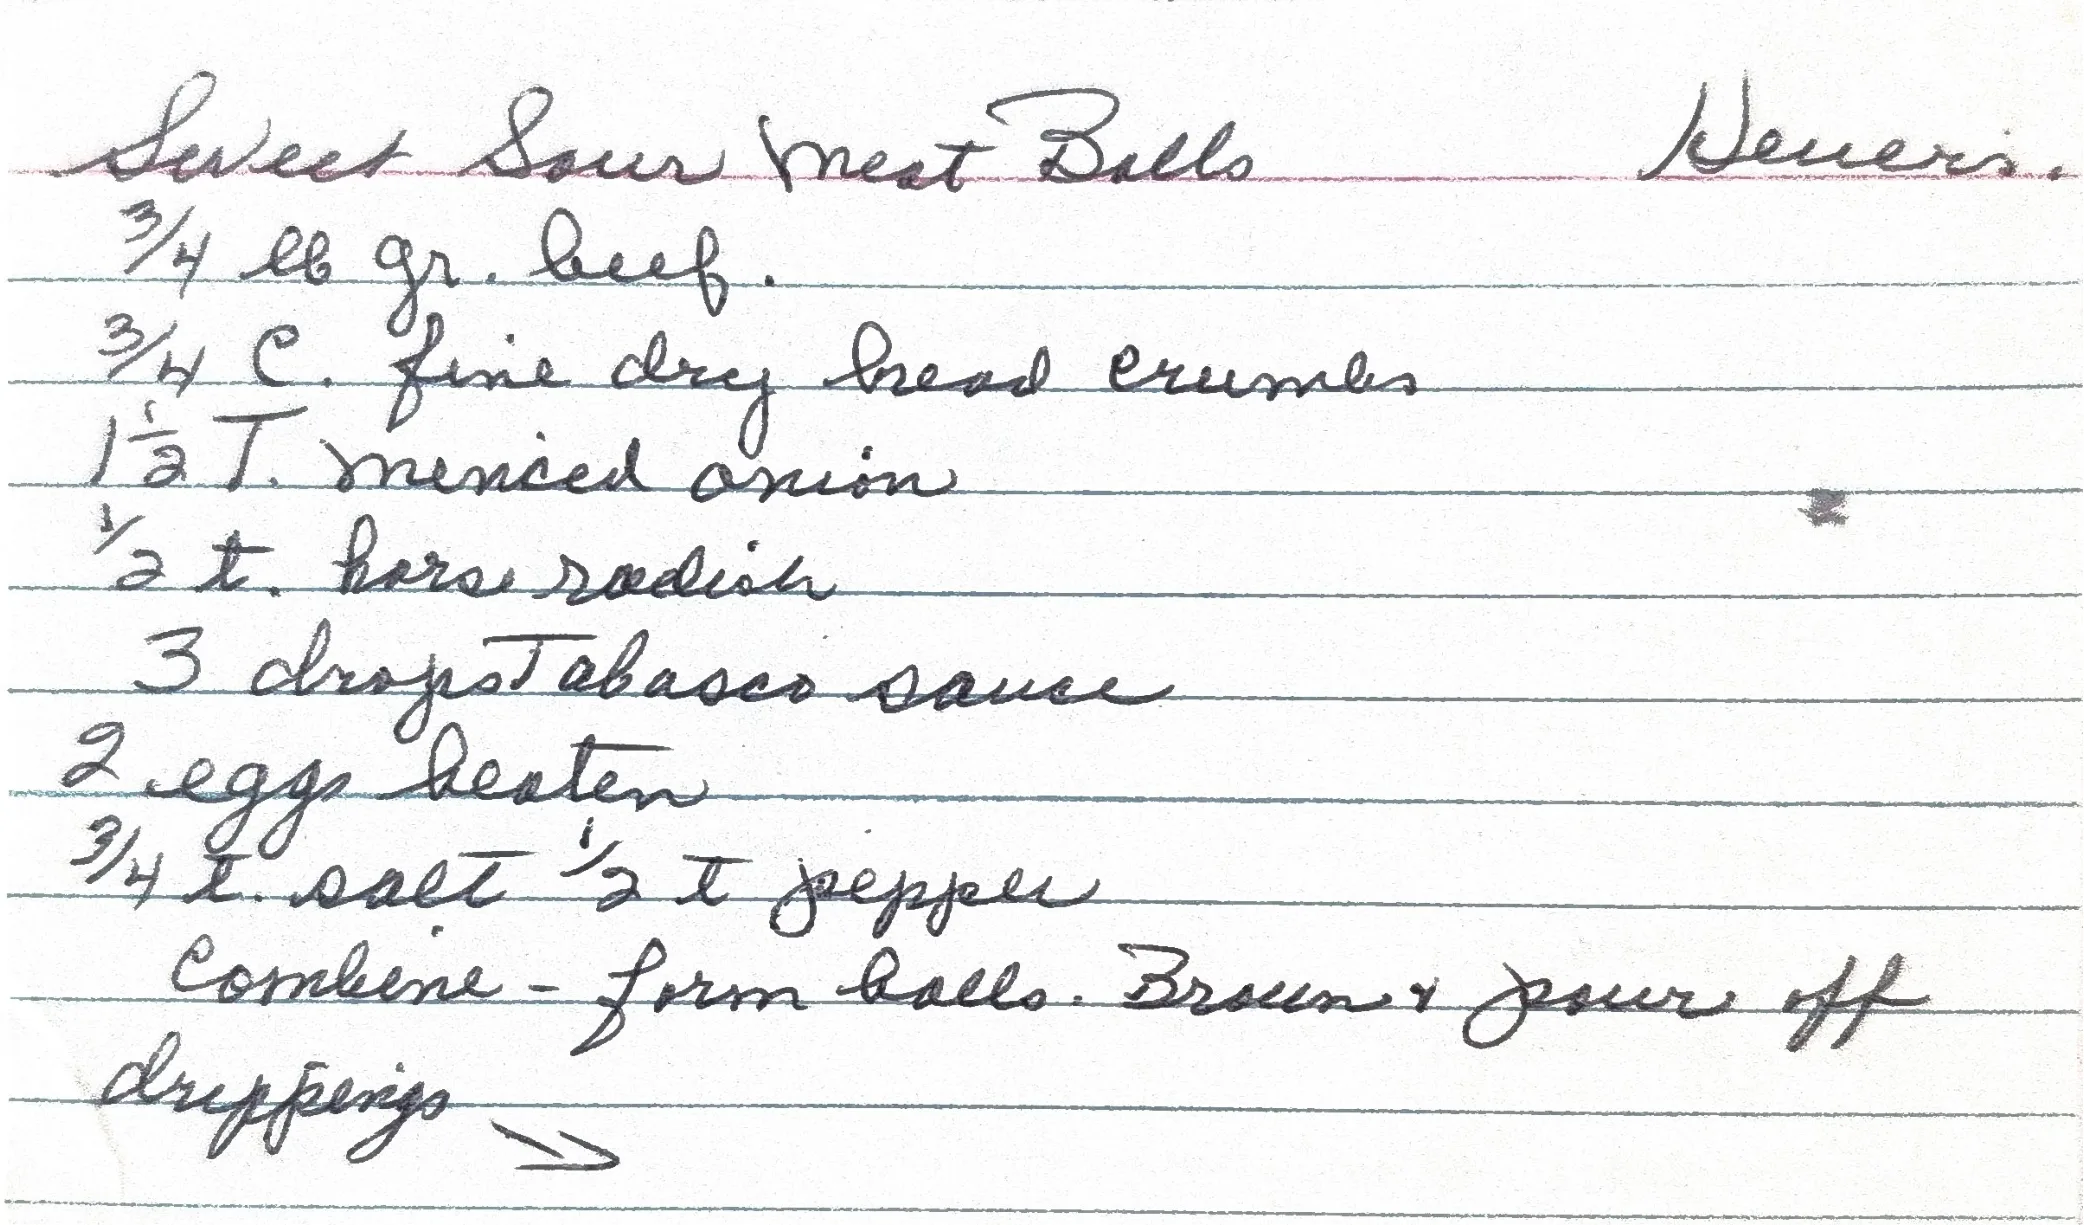 Sweet Sour Meat Balls
3/4 lb gr. beef.
3/4 C. fine dry bread crumbs
1 1/2 T. minced onion
1/2 t. horse radish
3 drops Tabasco sauce
2 eggs beaten
3/4 t. salt 1/2 t pepper
Combine - form balls. Brown & pour off
drippings